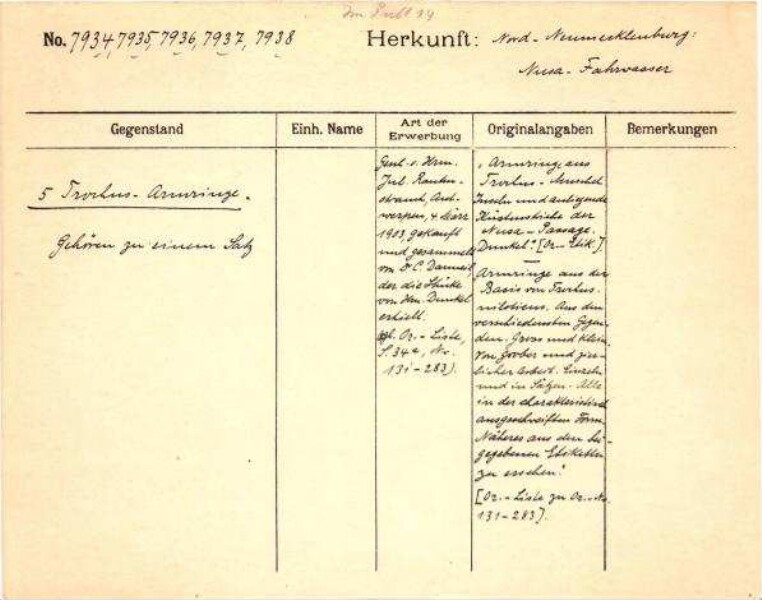 No. 7934, 7935, 7936, 7937, 7938
Herkunft: Nord-Neumecklenburg:
Nusa-Fahrwasser
Gegenstand
Einh. Name
Art der
Erwerbung
Originalangaben
Bemerkungen
5 Trochus-Armringe.
Gehören zu einem Satz
Gesch. v. Hrn.
Jul. Rauten-
strauch, Ant-
werpen, 4. März
1903, gekauft
und gesammelt
von Dr. C. Danneil,
der die Stücke
von Hrn. Dunkel
erhielt.
vgl. Or.-Liste,
S. 34a, No.
131-283).
"Armringe aus
Trochus-Muschel
Inseln und anliegende
Küstenstriche der
Nusa-Passage.
Dunkel." [Or-Etik.].
"Armringe aus der
Basis von Trochus
niloticus. Aus den
verschiedensten Gegen-
den. Gross und klein
von grober und zier-
licher Arbeit. Einzeln
und in Sätzen. Alle
in der charakteristisch
ausgeschweiften Form.
Näheres aus den bei-
gegebenen Etiketten
zu ersehen."
[Or.-Liste zu Or.-No.
131-283].